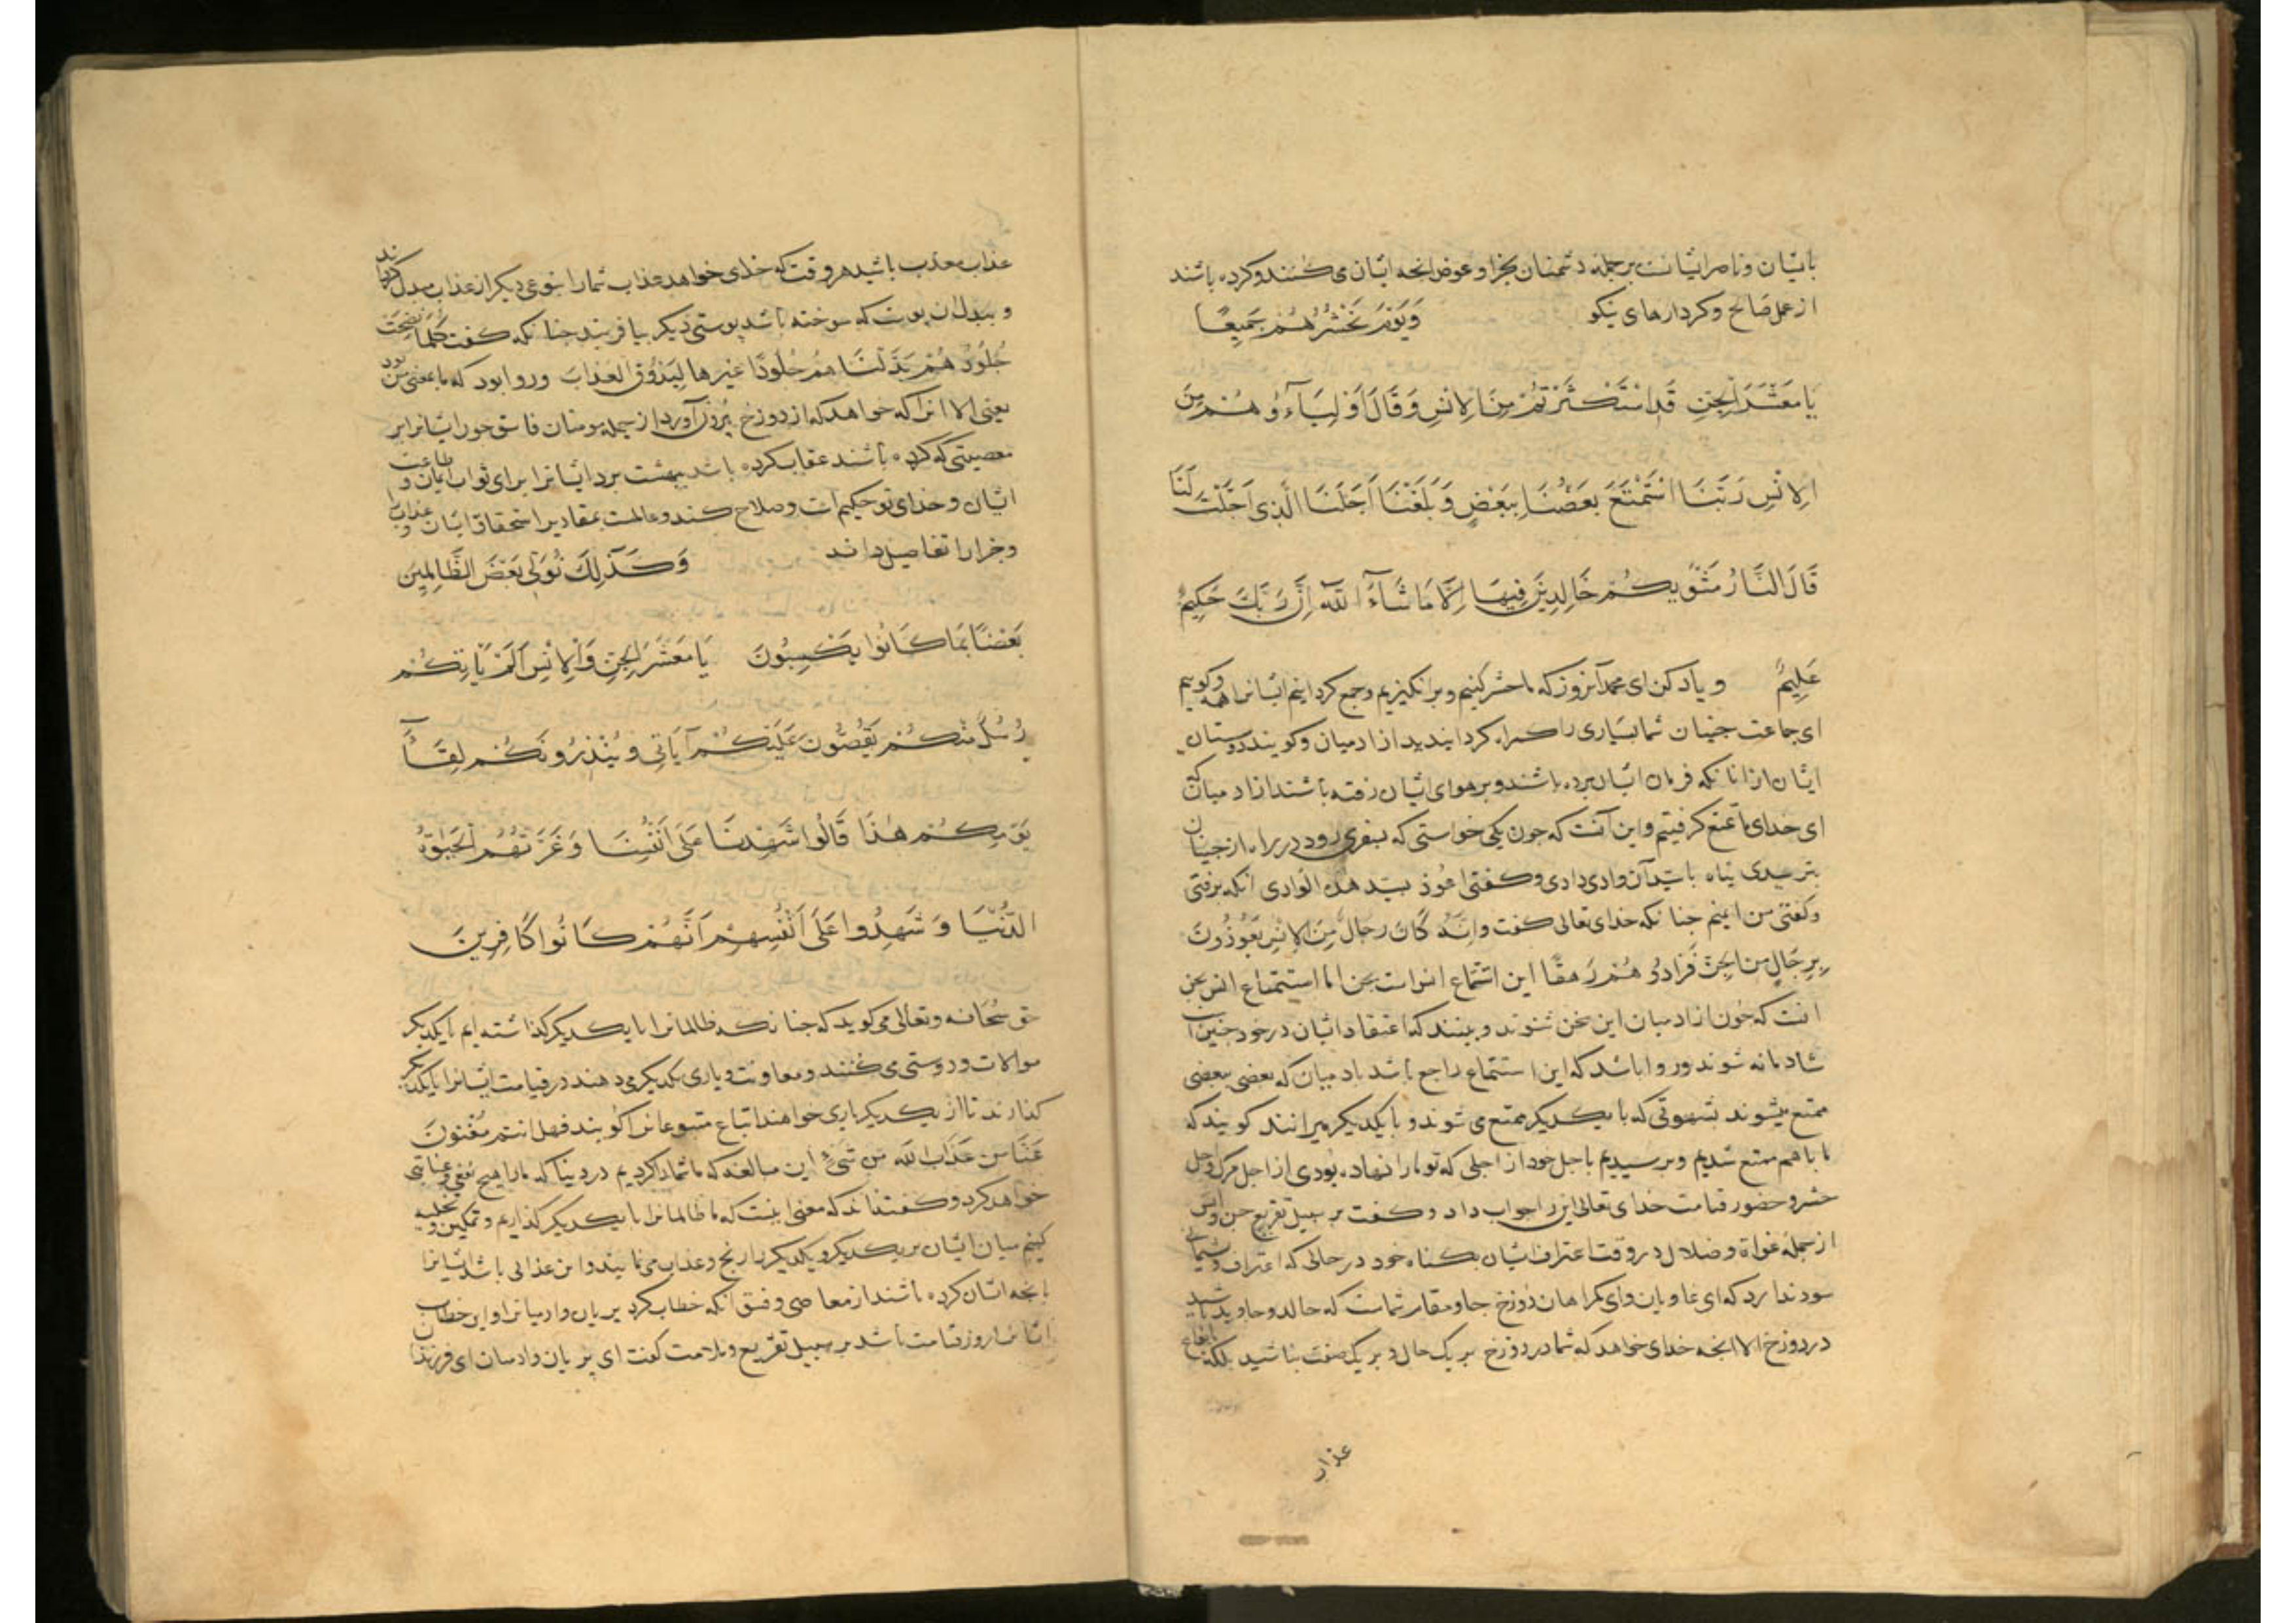 باشان و ناصر ایشانست بر جمله دشمنان بجزا و عوض انچه ایشان می کنند و کرده باشند
از عمل صالح و کردارهای نیکو وَيَوْمَ نَحْشُرُهُمْ جَمِيعًا
يَا مَعْشَرَ الْجِنِّ قَدِ اسْتَكْثَرْتُمْ مِنَ الْاِنْسِ وَقَالَ اَوْلِيَاۤءُهُمْ مِنَ
الْاِنْسِ رَبَّنَا اسْتَمْتَعَ بَعْضُنَا بِبَعْضٍ وَبَلَغْنَا اَجَلَنَا الَّذِى اَجَّلْتَ لَنَا
قَالَ النَّارُ مَثْوٰيكُمْ خَالِدِينَ فِيهَا اِلَّا مَا شَاۤءَ اللّٰهُ اِنَّ رَبَّكَ حَكِيمٌ
عَلِيمٌ و یاد کن ای محمد آنروز که ما حشر کنیم و برانکیزیم و جمع کردانیم ایشانرا همه و کوییم
ای جماعت جنیان شما بسیاری را کمراه کردانیدید از ادمیان و کویند دوستان
ایشان ازانانکه فرمان ایشان برده باشند و بر هوای ایشان رفته باشند از ادمیان که
ای خدای ما تمتع کرفتیم و این آنست که چون یکی خواستی که بسفری رود در راه از جنیان
بترسیدی پناه بسید آن وادی دادی و کفتی اعوذ بسید هذا الوادی انکه برفتی
و کفتی من ایمنم جنانکه خدای تعالی کفت وانه كان رجال من الانس يعوذون
برجال من الجن فزادوهم رهقا این استمتاع انس است بجن اما استمتاع انس بجن
انست که چون از ادمیان این سخن شنوند و بینند که اعتقاد ایشان در خود جنین است
شادمانه شوند و روا باشد که این استمتاع راجع باشد با ادمیان که بعضی ببعضی
ممتع میشوند بشهوتی که با یکدیکر ممتع می شوند و با یکدیکر میرانند کویند که
ما باهم ممتع شدیم و برسیدیم باجل خود از اجلی که تو ما را نهاده بودی از اجل مرک و اجل
حشر و حضور قیامت خدای تعالی این را جواب داد و کفت بر سبیل تقریع جن و انس
از جمله غواة و ضلال در وقت اعتراف ایشان بکناه خود در حالی که اعتراف و پشیمانی
سود ندارد که ای غاویان و ای کمراهان دوزخ جا و مقام شماست که خالد و جاوید باشید
در دوزخ الا انچه خدای خواهد که شما در دوزخ بر یک حال و بر یک صفت نباشید بلکه بانواع
عذاب
عذاب معذب باشید هر وقت که خدای خواهد عذاب شما را بنوعی دیکر از عذاب مبدل کرداند
و ببدل ان پوست که سوخته باشد پوستی دیکر بیافریند جنانکه کفت كلما نضجت
جلودهم بدلناهم جلودا غيرها ليذوق العذاب و روا بود که ما بمعنی من بود
یعنی الا انرا که خواهد که از دوزخ بیرون آورد از جمله مومنان فاسق چون ایشانرا بر
معصیتی که کرده باشند عقاب کرده باشد ببهشت برد ایشانرا برای ثواب ایمان و طاعت
ایشان و خدای تو حکیم است و صلاح کند و عالمست بمقادیر استحقاق ایشان و عذاب
و جزا را تفاصیل داند وَكَذٰلِكَ نُوَلِّى بَعْضَ الظَّالِمِينَ
بَعْضًا بِمَا كَانُوا يَكْسِبُونَ يَا مَعْشَرَ الْجِنِّ وَالْاِنْسِ اَلَمْ يَاْتِكُمْ
رُسُلٌ مِنْكُمْ يَقُصُّونَ عَلَيْكُمْ آيَاتِى وَيُنْذِرُونَكُمْ لِقَاۤءَ
يَوْمِكُمْ هٰذَا قَالُوا شَهِدْنَا عَلٰى اَنْفُسِنَا وَغَرَّتْهُمُ الْحَيٰوةُ
الدُّنْيَا وَشَهِدُوا عَلٰى اَنْفُسِهِمْ اَنَّهُمْ كَانُوا كَافِرِينَ
حق سبحانه و تعالی می کوید که جنانکه ظالمانرا با یکدیکر کذاشته ایم با یکدیکر
موالات و دوستی می کنند و معاونت و یاری یکدیکر می دهند در قیامت ایشانرا با یکدیکر
کذارند تا از یکدیکر یاری خواهند اتباع متبوعانرا کویند فهل انتم مغنون
عنا من عذاب الله من شئ این مبالغه که ما شما را کردیم در دنیا که ما را هیچ نفعی و عنایتی
خواهد کرد و کفته اند که معنی اینست که ما ظالمانرا با یکدیکر کذاریم و تمکین و تخلیه
کنیم میان ایشان بر یکدیکر و یکدیکر را رنج و عذاب می نمایند و این عذابی باشد ایشانرا
بانچه ایشان کرده باشند از معاصی و فسق انکه خطاب کرد پریان و ادمیانرا و این خطاب
ایشانرا روز قیامت باشد بر سبیل تقریع و ملامت کفت ای پریان و ادمیان ای فرزندان